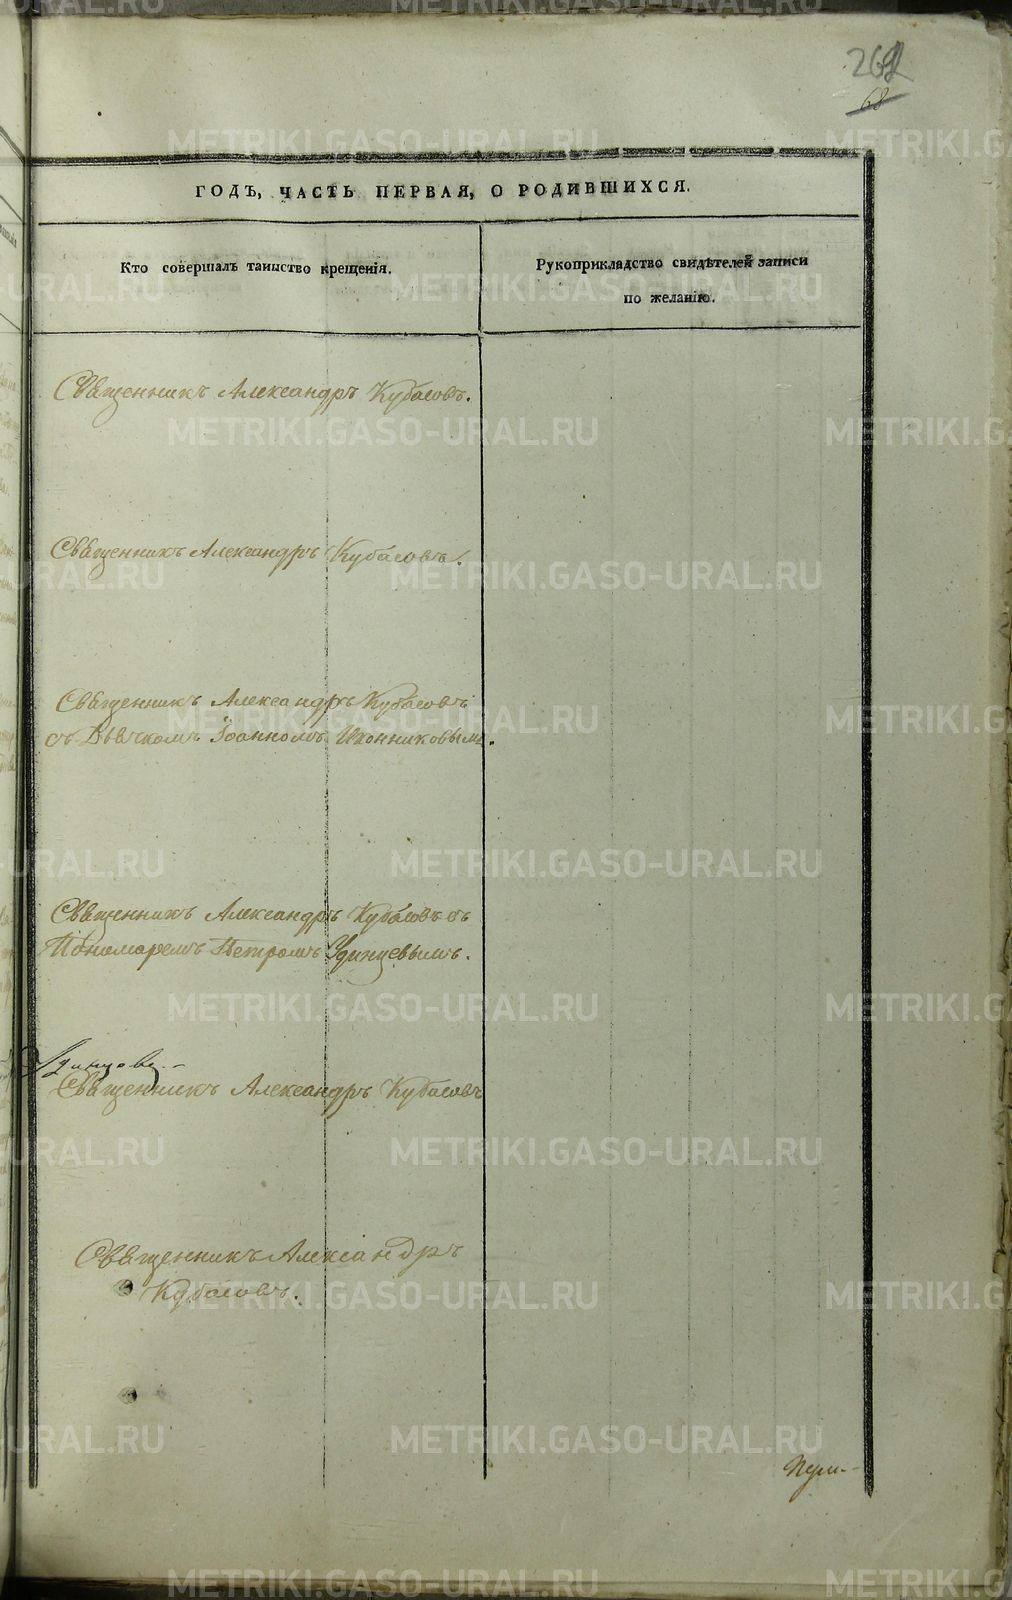 262
68
ГОДЪ, ЧАСТЬ ПЕРВАЯ, О РОДИВШИХСЯ.
Кто совершалъ таинство крещенія.
Рукоприкладство свидѣтелей записи
по желанію.
Священникъ Александръ Кубасовъ.
Священникъ Александръ Кубасовъ.
Священникъ Александръ Кубасовъ
съ Дьячкомъ Іоанномъ Иконниковымъ.
Священникъ Александръ Кубасовъ съ
Пономаремъ Петромъ Удинцевымъ.
Священникъ Александръ Кубасовъ
Священникъ Александръ
Кубасовъ.
METRIKI.GASO-URAL.RU